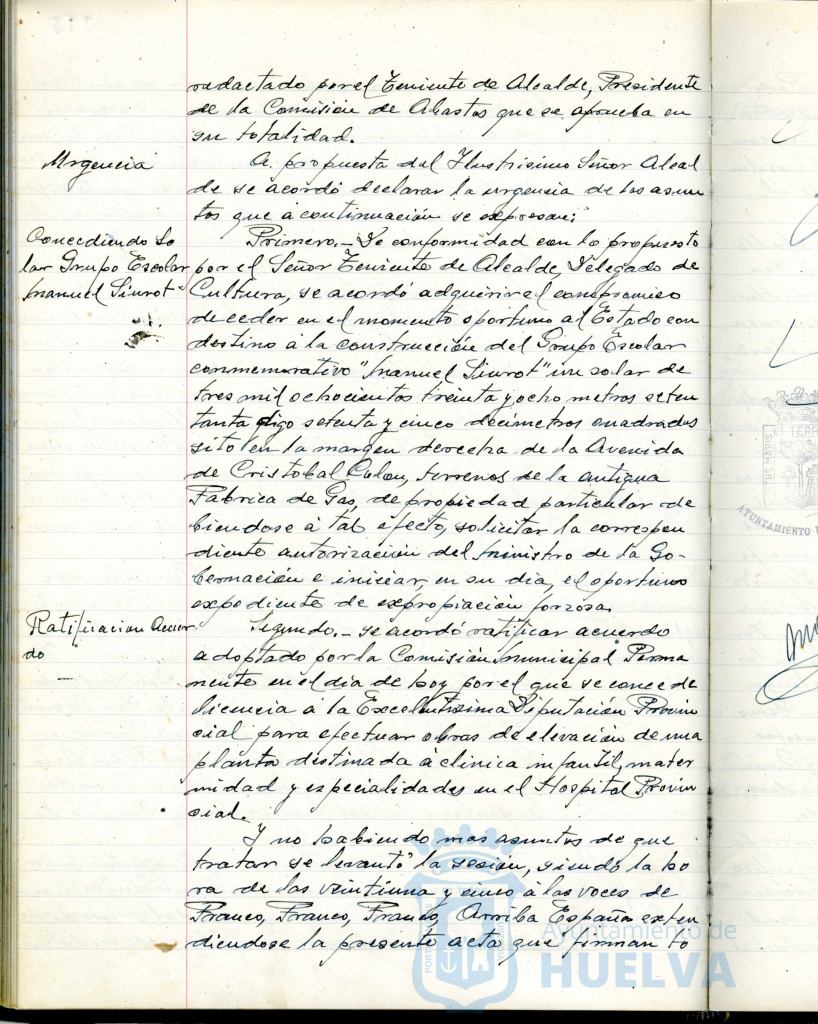 redactado por el Teniente de Alcalde, Presidente
de la Comisión de Abastos que se aprueba en
su totalidad.
Urgencia
A propuesta del Ilustrisimo Señor Alcal
de se acordó declarar la urgencia de los asun
tos que á continuación se expresan:
Concediendo So
lar Grupo Escolar
Manuel Siurot"
Primero.- De conformidad con lo propuesto
por el Señor Teniente de Alcalde, Delegado de
Cultura, se acordó adquirir el compromiso
de ceder en el momento oportuno al Estado con
destino á la construcción del Grupo Escolar
conmemorativo "Manuel Siurot" un solar de
tres mil ochocientos treinta y ocho metros seten
tanta digo setenta y cinco decímetros cuadrados
sito en la margen derecha de la Avenida
de Cristobal Colon, terrenos de la antigua
Fabrica de Gas, de propiedad particular de
biendose á tal efecto, solicitar la correspon
diente autorización del Ministro de la Go-
bernación e iniciar, en su dia, el oportuno
expediente de expropiación forzosa.
Ratificacion Acuer
do
Segundo.- Se acordó ratificar acuerdo
adoptado por la Comisión Municipal Perma
nente en el día de hoy por el que se concede
licencia á la Excelentisima Diputación Provin
cial para efectuar obras de elevación de una
planta distinada á clinica infantil, mater
nidad y especialidades en el Hospital Provin
cial.
Y no habiendo mas asuntos de que
tratar se levantó la sesión, siendo la ho
ra de las veintiuna y cinco á las voces de
Franco, Franco, Franco, Arriba España exten
diendose la presente acta que firman to
Ayuntamiento de
HUELVA
AYUNTAMIENTO